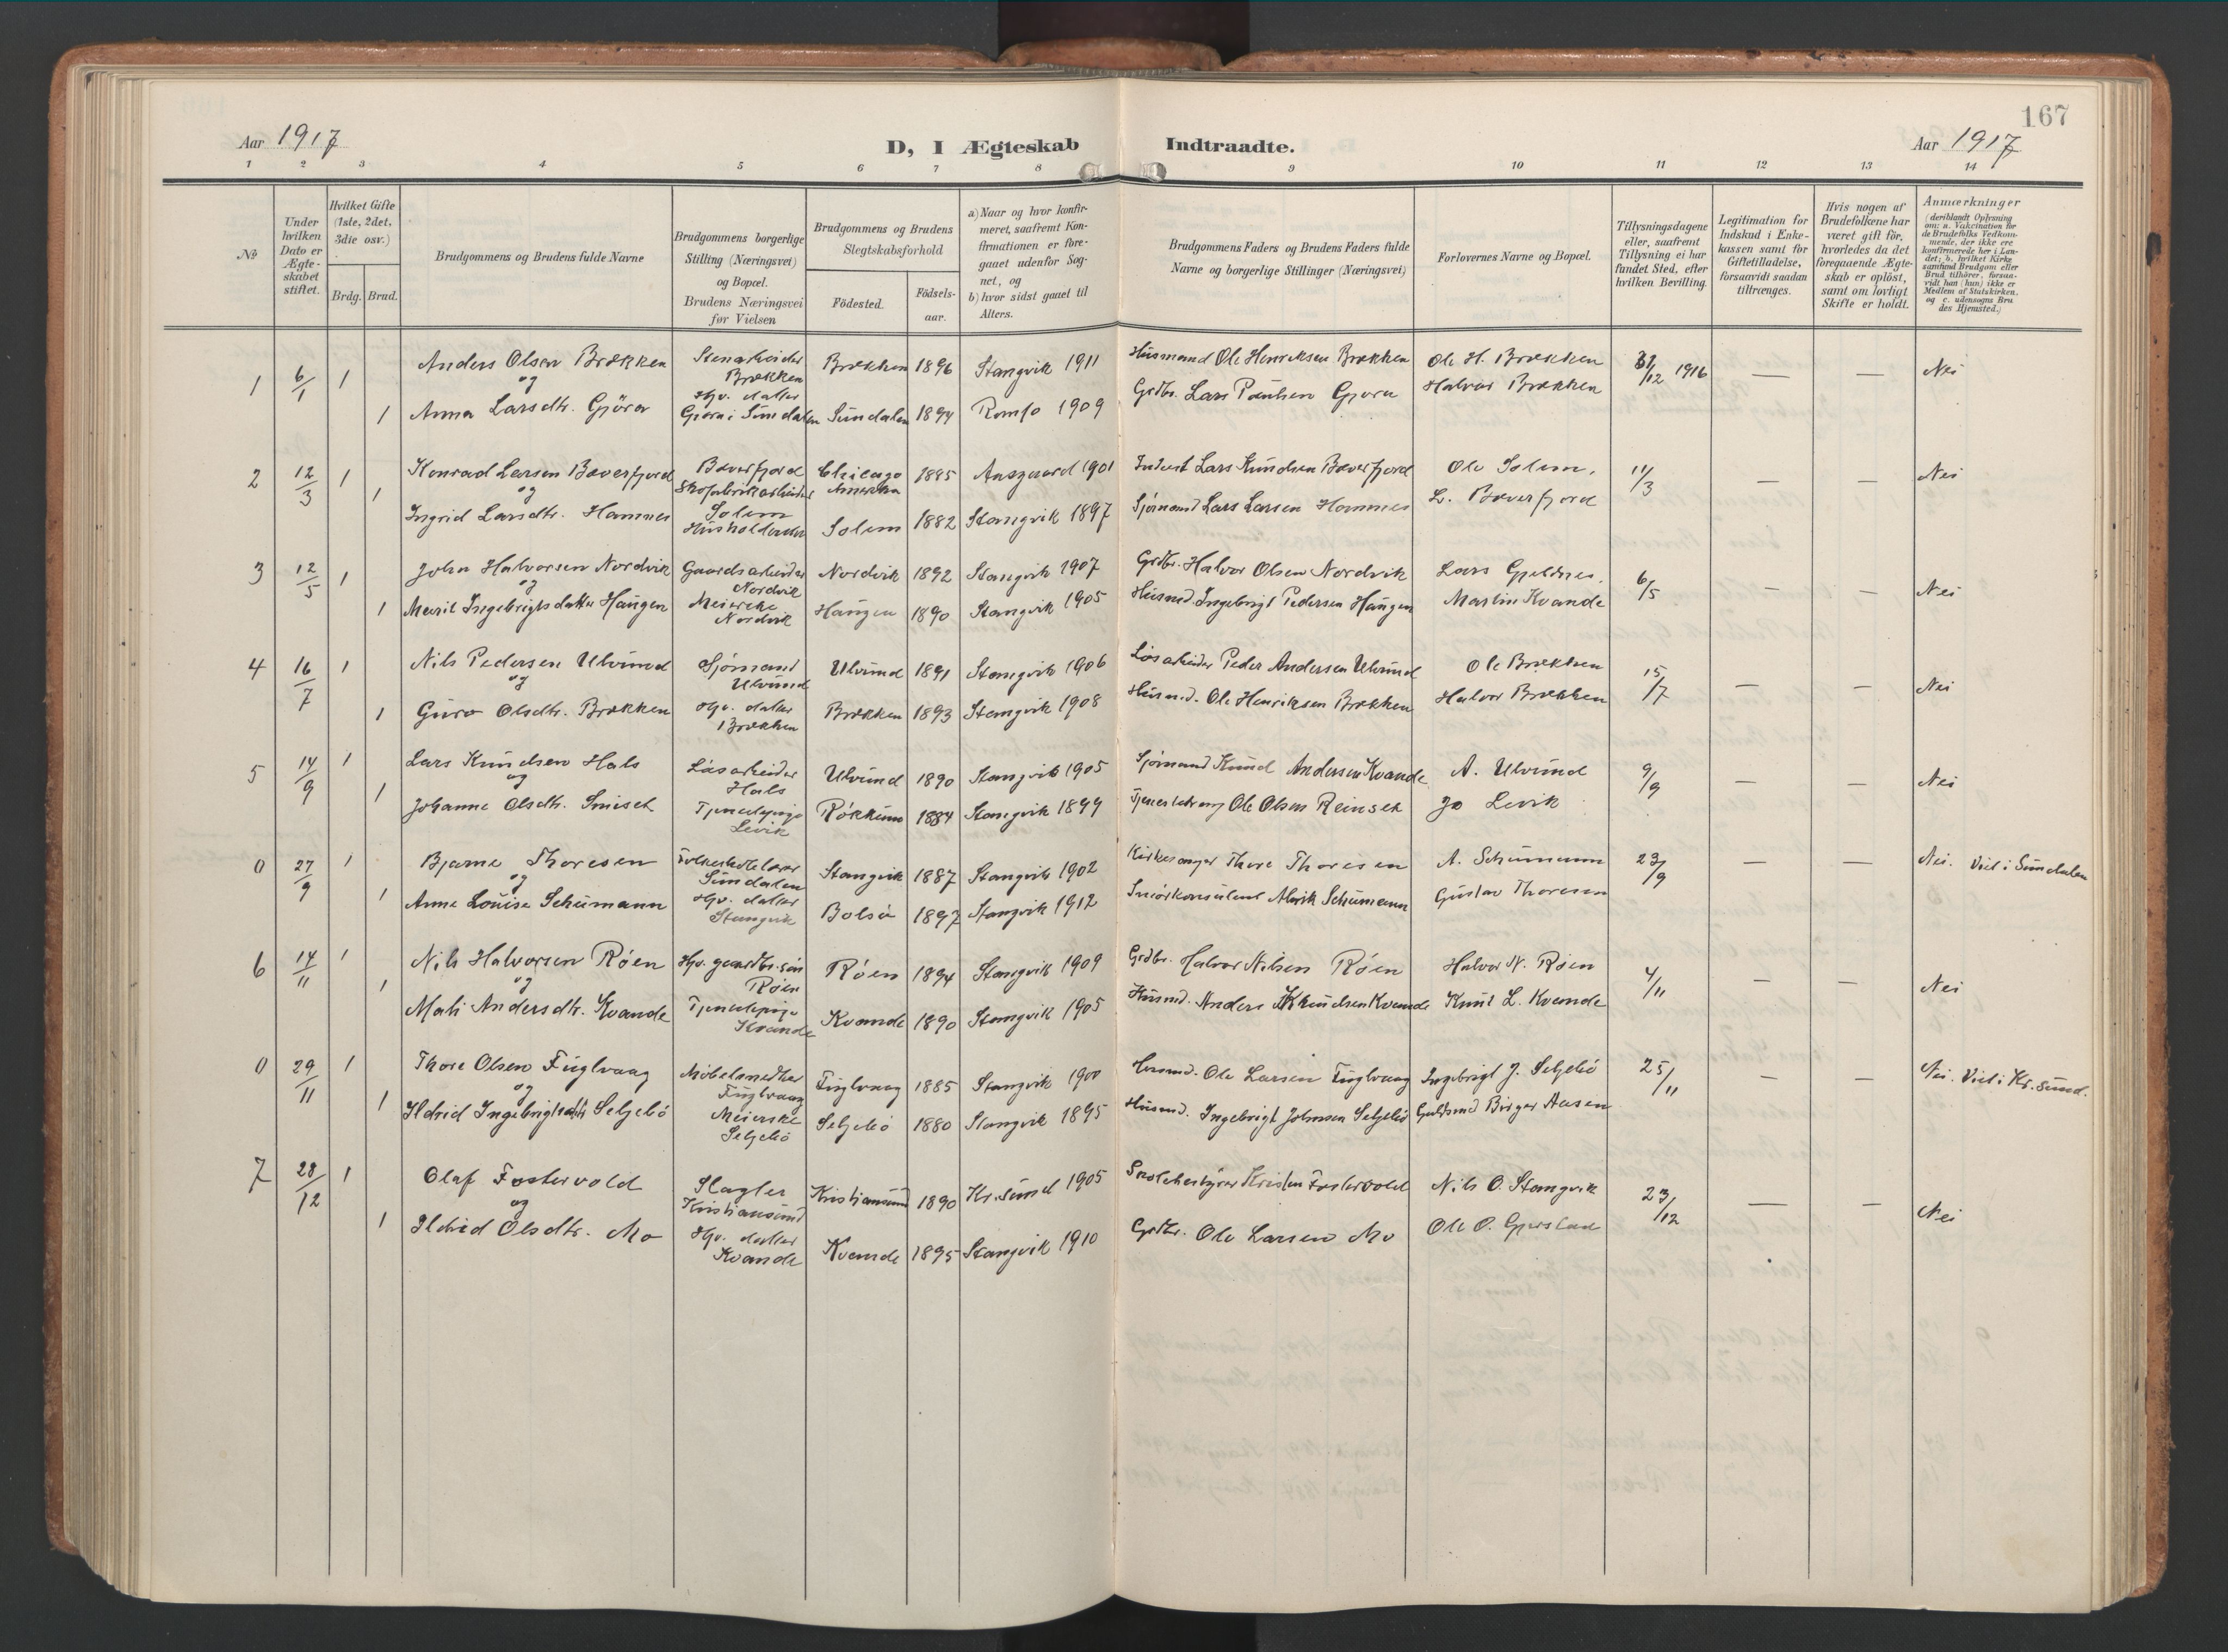 167
Aar 1917
D, I Ægteskab Indtraadte.
Aar 1917
1 2 3 4 5 6 7 8 9 10 11 12 13 14
No
Under hvilken Dato er Ægte-skabet stiftet.
Hvilket Gifte (1ste, 2det, 3die osv.)
Brdg. Brud.
Brudgommens og Brudens fulde Navne
Brudgommens borgerlige Stilling (Næringsvei) og Bopæl. Brudens Næringsvei før Vielsen
Brudgommens og Brudens Slegtskabsforhold
Födested. Födsels-aar.
a) Naar og hvor konfir-meret, saafremt Kon-firmationen er fore-gaaet udenfor Sog-net, og b) hvor sidst gaaet til Alters.
Brudgommens Faders og Brudens Faders fulde Navne og borgerlige Stillinger (Næringsvei)
Forlovernes Navne og Bopæl.
Tillysningsdagene eller, saafremt Tillysning ei har fundet Sted, efter hvilken Bevilling.
Legitimation for Indskud i Enke-kassen samt for Giftetilladelse, forsaavidt saadan tiltrænges.
Hvis nogen af Brudefolkene har været gift för, hvorledes da det foregaaende Ægte-skab er oplöst, samt om lovligt Skifte er holdt.
Anmærkninger (deriblandt Oplysning om: a. Vakcination for de Brudefolks Vedkom-mende, der ikke ere konfirmerede her i Lan-det; b. hvilket Kirke samfund Brudgom eller Brud tilhörer, forsaa-vidt han (hun) ikke er Medlem af Statskirken. og c. udensogns Bru des Hjemsted.)
1 6/1 1 Anders Olsen Brækken Stenarbeider Brækken Brækken 1896 Stangvik 1911 Husmand Ole Henriksen Brækken Ole H. Brækken 31/12 1916 — — Nei
og
1 Anna Larsdtr. Gjöra Hjv. datter Gjöra i Sundalen Sundalen 1894 Romfo 1909 Grdbr. Lars Paulsen Gjöra Halvor Brækken
2 12/3 1 Konrad Larsen Bæverfjord Bæverfjord Skofabrikarbeider Chicago Amerika 1885 Aasgaard 1901 Lars Knudsen Bæverfjord Ole Solem. 11/3 — — Nei
og
1 Ingrid Larsdtr. Hamnes Solem Husholderske Solem 1882 Stangvik 1897 Sjömand Lars Larsen Hamnes L. Bæverfjord
3 12/5 1 John Halvorsen Nordvik Gaardsarbeider Nordvik Nordvik 1892 Stangvik 1907 Grdbr. Halvor Olsen Nordvik Lars Gjeldnes. 6/5 — — Nei
og
1 Marit Ingebrigtsdatter Haugen Meierske Nordvik Haugen 1890 Stangvik 1905 Husmd. Ingebrigt Pedersen Haugen Martin Kvande
4 16/7 1 Nils Pedersen Ulvund Sjömand Ulvund Ulvund 1891 Stangvik 1906 Lösarbeider Peder Andersen Ulvund Ole Brækken 15/7 — — Nei
og
1 Guro Olsdtr. Brækken Hjv. datter Brækken Brækken 1893 Stangvik 1908 Husmd. Ole Henriksen Brækken Halvor Brækken
5 14/9 1 Lars Knudsen Hals Lösarbeider Hals Ulvund 1890 Stangvik 1905 Sjömand Knud Andersen Kvande A. Ulvund 9/9 — — Nei
og
1 Johanne Olsdtr. Tjenestepige Levik Rökkum 1884 Stangvik 1899 Ole Olsen Reinset Jo Levik
0 27/9 1 Bjarne Thoresen Sundalen Stangvik 1887 Stangvik 1902 Kirkesanger Thore Thoresen A. Schumann 23/9 — — Nei. Viet i Sundalen
og
1 Anne Louise Schumann Hjv. datter Stangvik Bolsö 1897 Stangvik 1912 Alarik Schumann Gustav Thoresen
6 14/11 1 Nils Halvorsen Röen Hjv. gaardbr. sön Röen Röen 1894 Stangvik 1909 Grdbr. Halvor Nilsen Röen Halvor N. Röen 4/11 — — Nei
og
1 Mali Andersdtr. Kvande Tjenestepige Kvande Kvande 1890 Stangvik 1905 Husmd. Anders Knudsen Kvande Knut L. Kvande
0 29/11 1 Thore Olsen Fuglvaag Möbelsnedker Fuglvaag Fuglvaag 1885 Stangvik 1900 Husmd. Ole Larsen Fuglvaag Ingebrigt J. Seljebö 25/11 — — Nei. Viet i Kr.sund.
og
1 Ildrid Ingebrigtsdtr Seljebö Meierske Seljebö Seljebö 1880 Stangvik 1895 Husmd. Ingebrigt Johnsen Seljebö Guldsmd Birger Aasen
7 28/12 1 Olaf Fostervold Slagter Kristiansund Kristiansund 1890 Kr.sund 1905 Skolebestyrer Kristen Fostervold Nils O. Stangvik 23/12 — — Nei
og
1 Ildrid Olsdtr. Mo Hjv. datter Kvande Kvande 1895 Stangvik 1910 Grdbr. Ole Larsen Mo Ole O. Gjerstad